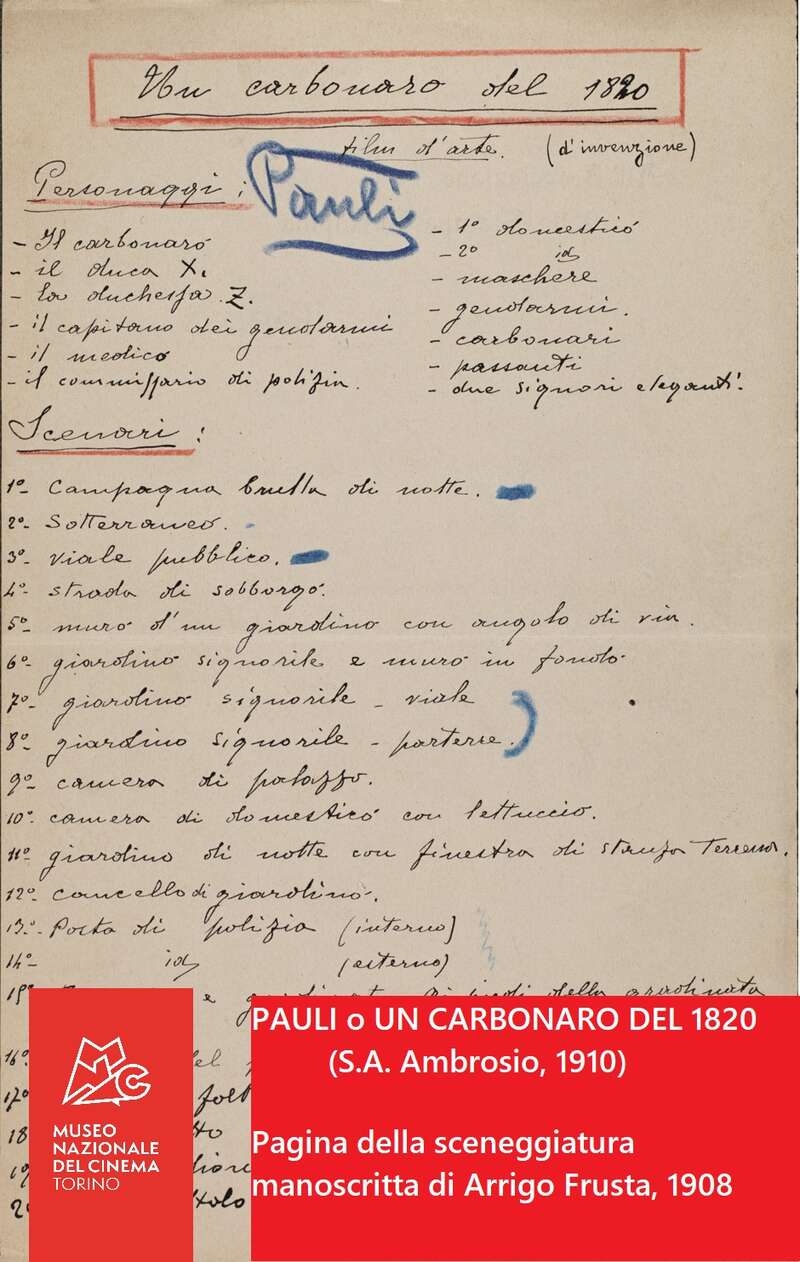 Un carbonaro del 1820
film d'arte. (d'invenzione)
Pauli
Personaggi:
- Il carbonaro
- il duca X.
- la duchessa Z.
- il capitano dei gendarmi
- il medico
- il commissario di polizia.
- 1º domestico
- 2º id
- maschere
- gendarmi.
- carbonari
- passanti
- due signori eleganti.
Scenari:
1º- Campagna brulla di notte.
2º- Sotterraneo.
3º- viale pubblico.
4º- strada di sobborgo.
5º- muro d'un giardino con angolo di via.
6º- giardino signorile e muro in fondo
7º- giardino signorile - viale
8º- giardino signorile - parterre.
9º- camera di palazzo.
10º- camera di domestico con lettuccio.
11º- giardino di notte con finestra di stanza terrena.
12º- cancello di giardino.
13º- Posto di polizia (interno)
14º- id (esterno)
15º e della gradinata
16º-
17º
18
19
2
MUSEO
NAZIONALE
DEL CINEMA
TORINO
PAULI o UN CARBONARO DEL 1820
(S.A. Ambrosio, 1910)
Pagina della sceneggiatura
manoscritta di Arrigo Frusta, 1908